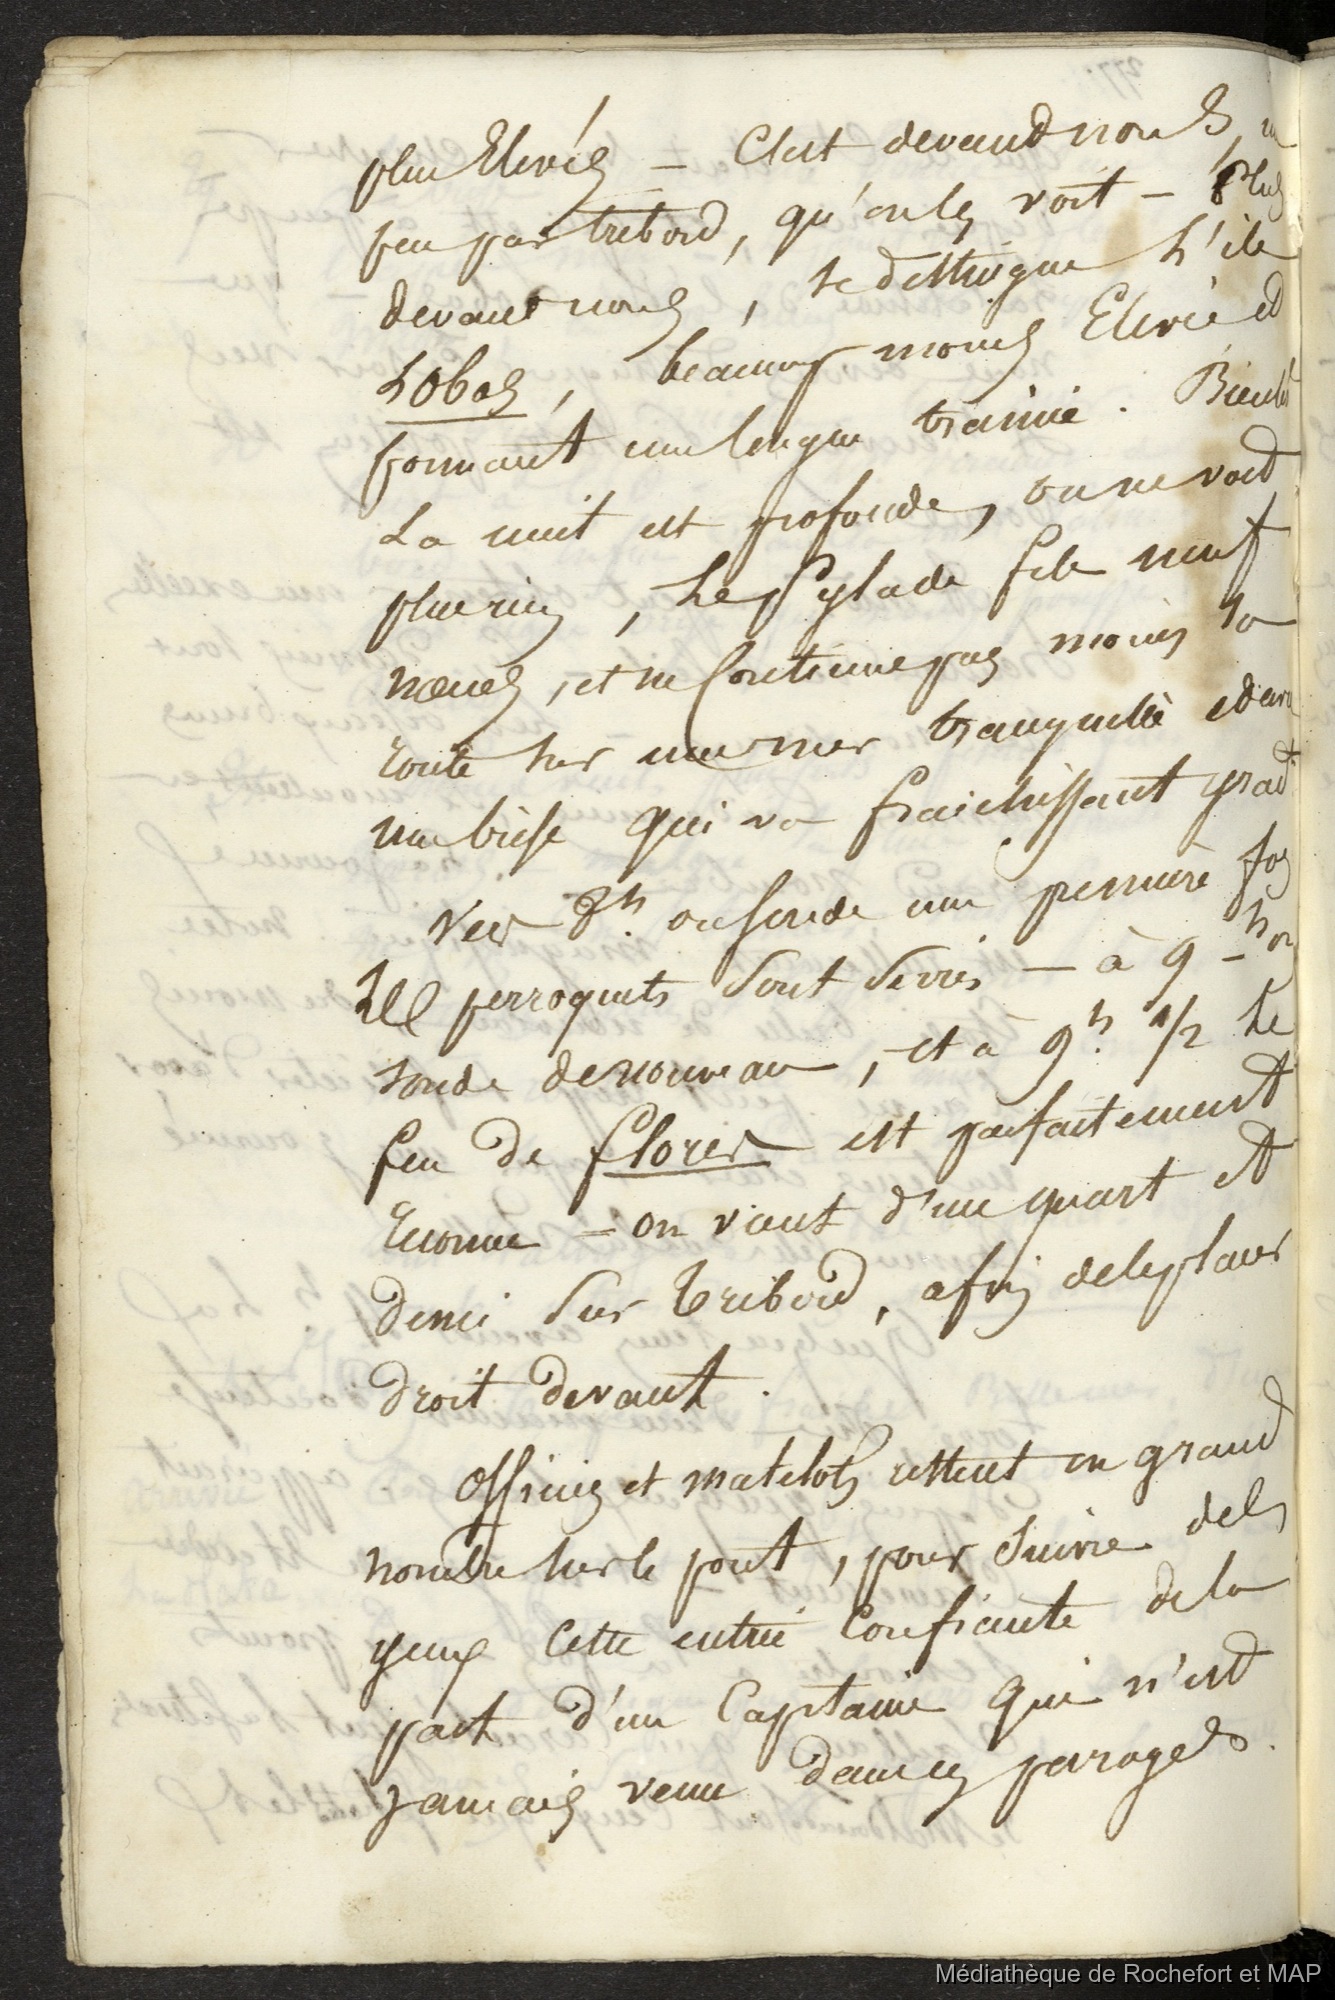 plus Elevés – C'est devant nous, un
peu par tribord, qu'on les voit – Plus
devant nous, se distingue L'ile
Lobos, beaucoup moins Elevée et
formant une longue trainée. Bientôt
La nuit est profonde, on ne voit
plus rien, Le Pylade file neuf
nœuds, et ne Continue pas moins sa
route sur une mer tranquille et avec
une brise qui va fraichissant
Vers 8h. on sonde une première fois
Les perroquets sont serrés – à 9h on
sonde de nouveau, et à 9h. 1/2 Le
feu de flores est parfaitement
reconnu – on vient d'un quart et
demi sur tribord, afin de le placer
droit devant.
Officiers et matelots restent en grand
nombre sur le pont, pour suivre des
yeux cette entrée Confiante de la
part d'un Capitaine qui n'est
jamais venu dans ces parages.
Médiathèque de Rochefort et MAP